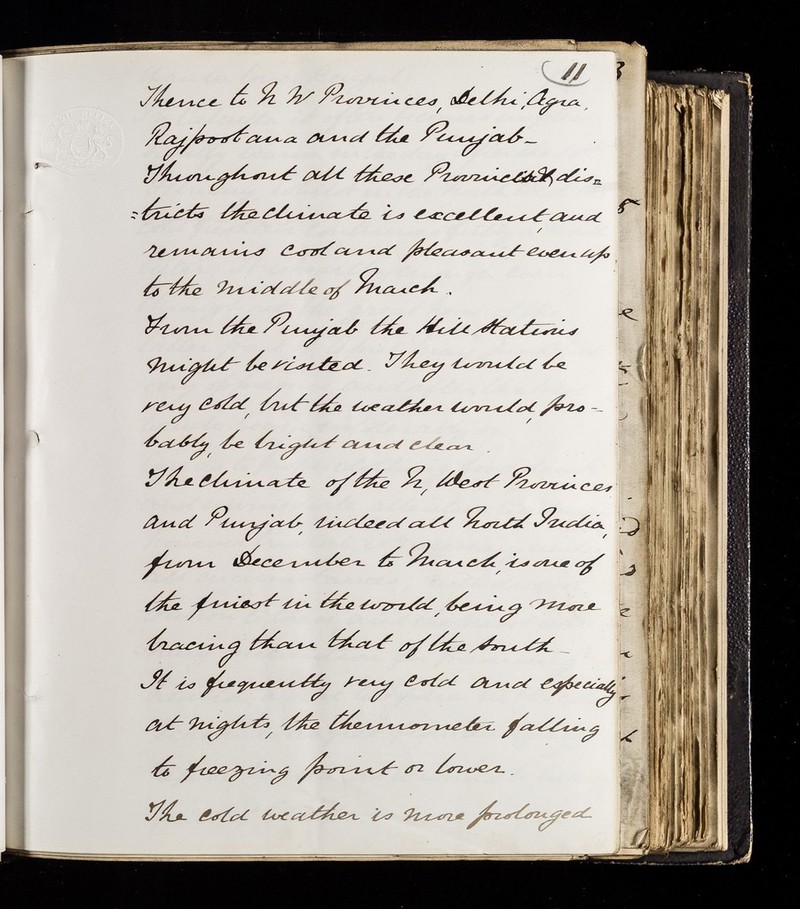 11
Thence to N W Provinces, Delhi, Agra,
Rajpootana and the Punjab-
Throughout all these Provinces & dis=
=tricts the climate is excellent, and
remains cool and pleasant even up
to the middle of March.
From the Punjab the Hill Stations
might be visited. They would be
very cold, but the weather would, pro-
bably, be bright and clear.
The climate of the N, West Provinces
and Punjab, indeed all North India,
from December to March, is one of
the finest in the world, being more
bracing than that of the South-
It is frequently very cold and especially
at nights, the thermometer falling
to freezing point or lower.
The cold weather is more prolonged